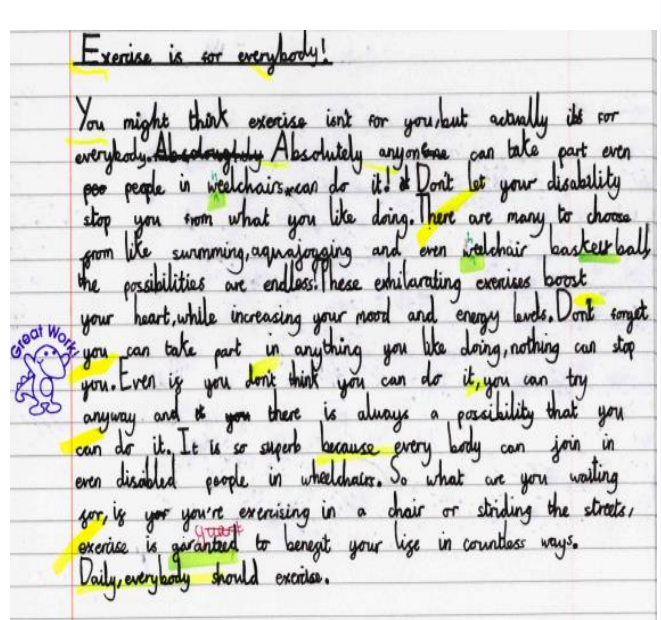 Exercise is for everybody!
You might think exercise isn't for you, but actually its for
everybody. Absoloughtly Absolutely anyone can take part even
peo people in weelchairs can do it! Don't let your disability
stop you from what you like doing. There are many to choose
from like swimming, aquajogging and even weelchair baskeutball,
the possibilities are endless! These exhilarating exercises boost
your heart, while increasing your mood and energy levels. Don't forget
you can take part in anything you like doing, nothing can stop
you. Even if you don't think you can do it, you can try
anyway and if you there is always a possibility that you
can do it. It is so superb because every body can join in
even disabled people in wheelchairs. So what are you waiting
for, if yor you're exercising in a chair or striding the streets,
exercise is garanteed to benefit your life in countless ways.
Daily, everybody should exercise.
Great Work!